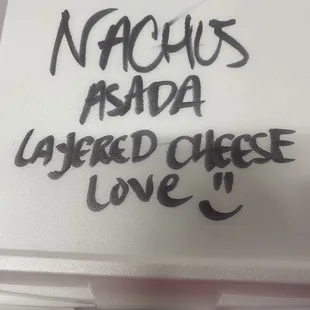 NACHOS
ASADA
LAYERED CHEESE
LOVE